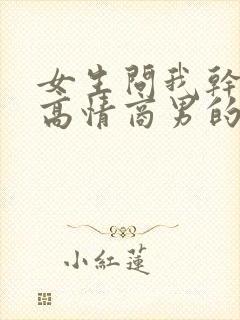 女生問我幹
高情商男的
小紅蓮